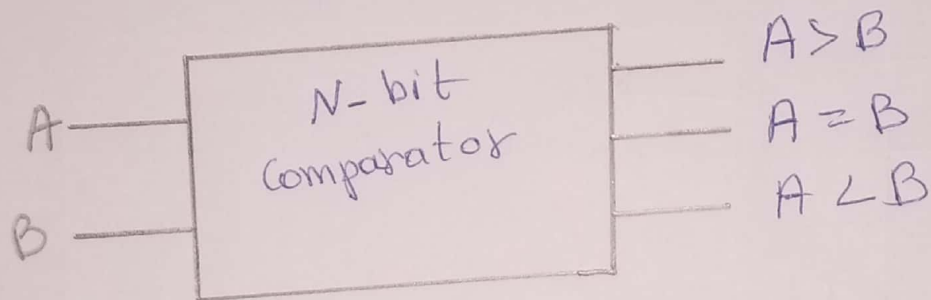 A
B
N-bit
Comparator
A > B
A = B
A < B